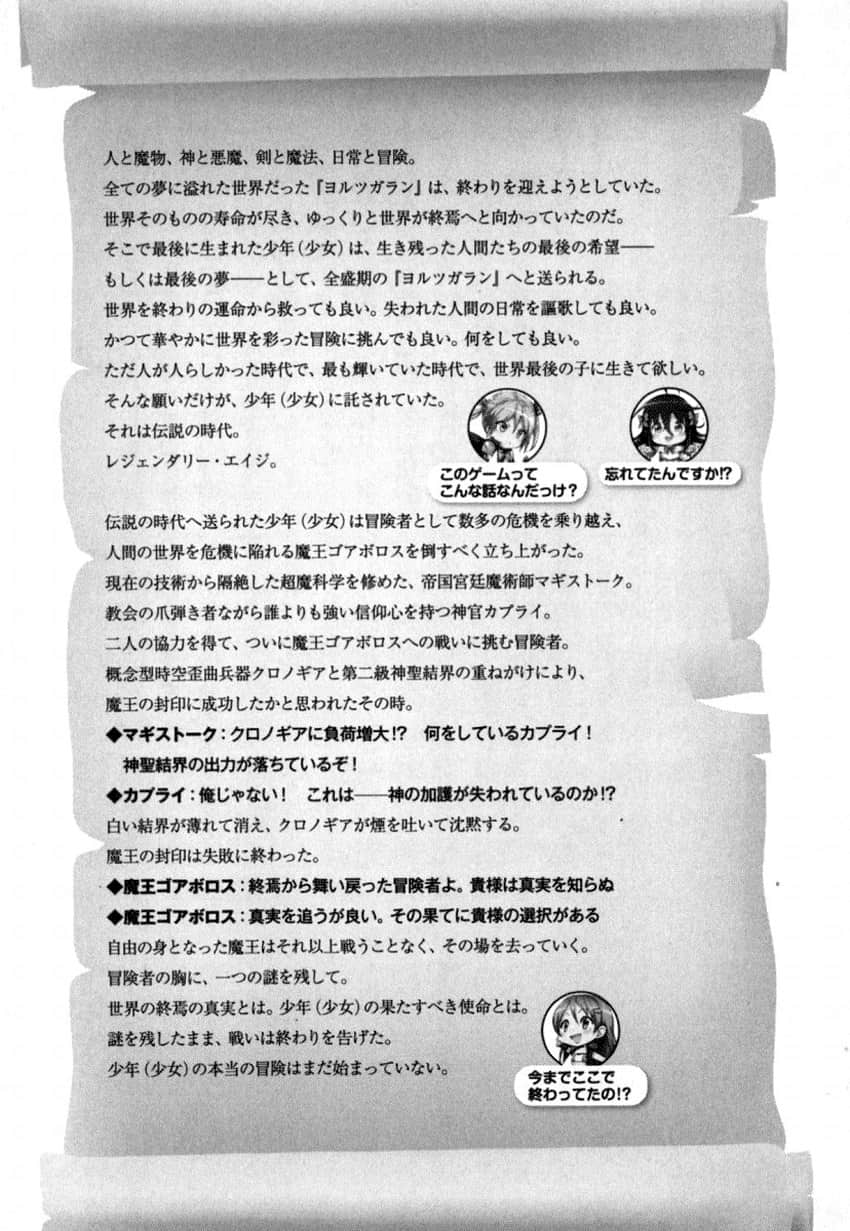 人と魔物、神と悪魔、剣と魔法、日常と冒険。
全ての夢に溢れた世界だった『ヨルツガラン』は、終わりを迎えようとしていた。
世界そのものの寿命が尽き、ゆっくりと世界が終焉へと向かっていたのだ。
そこで最後に生まれた少年（少女）は、生き残った人間たちの最後の希望――
もしくは最後の夢――として、全盛期の『ヨルツガラン』へと送られる。
世界を終わりの運命から救っても良い。失われた人間の日常を謳歌しても良い。
かつて華やかに世界を彩った冒険に挑んでも良い。何をしても良い。
ただ人が人らしかった時代で、最も輝いていた時代で、世界最後の子に生きて欲しい。
そんな願いだけが、少年（少女）に託されていた。
それは伝説の時代。
レジェンダリー・エイジ。
このゲームって
こんな話なんだっけ？
忘れてたんですか!?
伝説の時代へ送られた少年（少女）は冒険者として数多の危機を乗り越え、
人間の世界を危機に陥れる魔王ゴアボロスを倒すべく立ち上がった。
現在の技術から隔絶した超魔科学を修めた、帝国宮廷魔術師マギストーク。
教会の爪弾き者ながら誰よりも強い信仰心を持つ神官カブライ。
二人の協力を得て、ついに魔王ゴアボロスへの戦いに挑む冒険者。
概念型時空歪曲兵器クロノギアと第二級神聖結界の重ねがけにより、
魔王の封印に成功したかと思われたその時。
◆マギストーク：クロノギアに負荷増大!?　何をしているカブライ！
神聖結界の出力が落ちているぞ！
◆カブライ：俺じゃない！　これは――神の加護が失われているのか!?
白い結界が薄れて消え、クロノギアが煙を吐いて沈黙する。
魔王の封印は失敗に終わった。
◆魔王ゴアボロス：終焉から舞い戻った冒険者よ。貴様は真実を知らぬ
◆魔王ゴアボロス：真実を追うが良い。その果てに貴様の選択がある
自由の身となった魔王はそれ以上戦うことなく、その場を去っていく。
冒険者の胸に、一つの謎を残して。
世界の終焉の真実とは。少年（少女）の果たすべき使命とは。
謎を残したまま、戦いは終わりを告げた。
少年（少女）の本当の冒険はまだ始まっていない。
今までここで
終わってたの!?